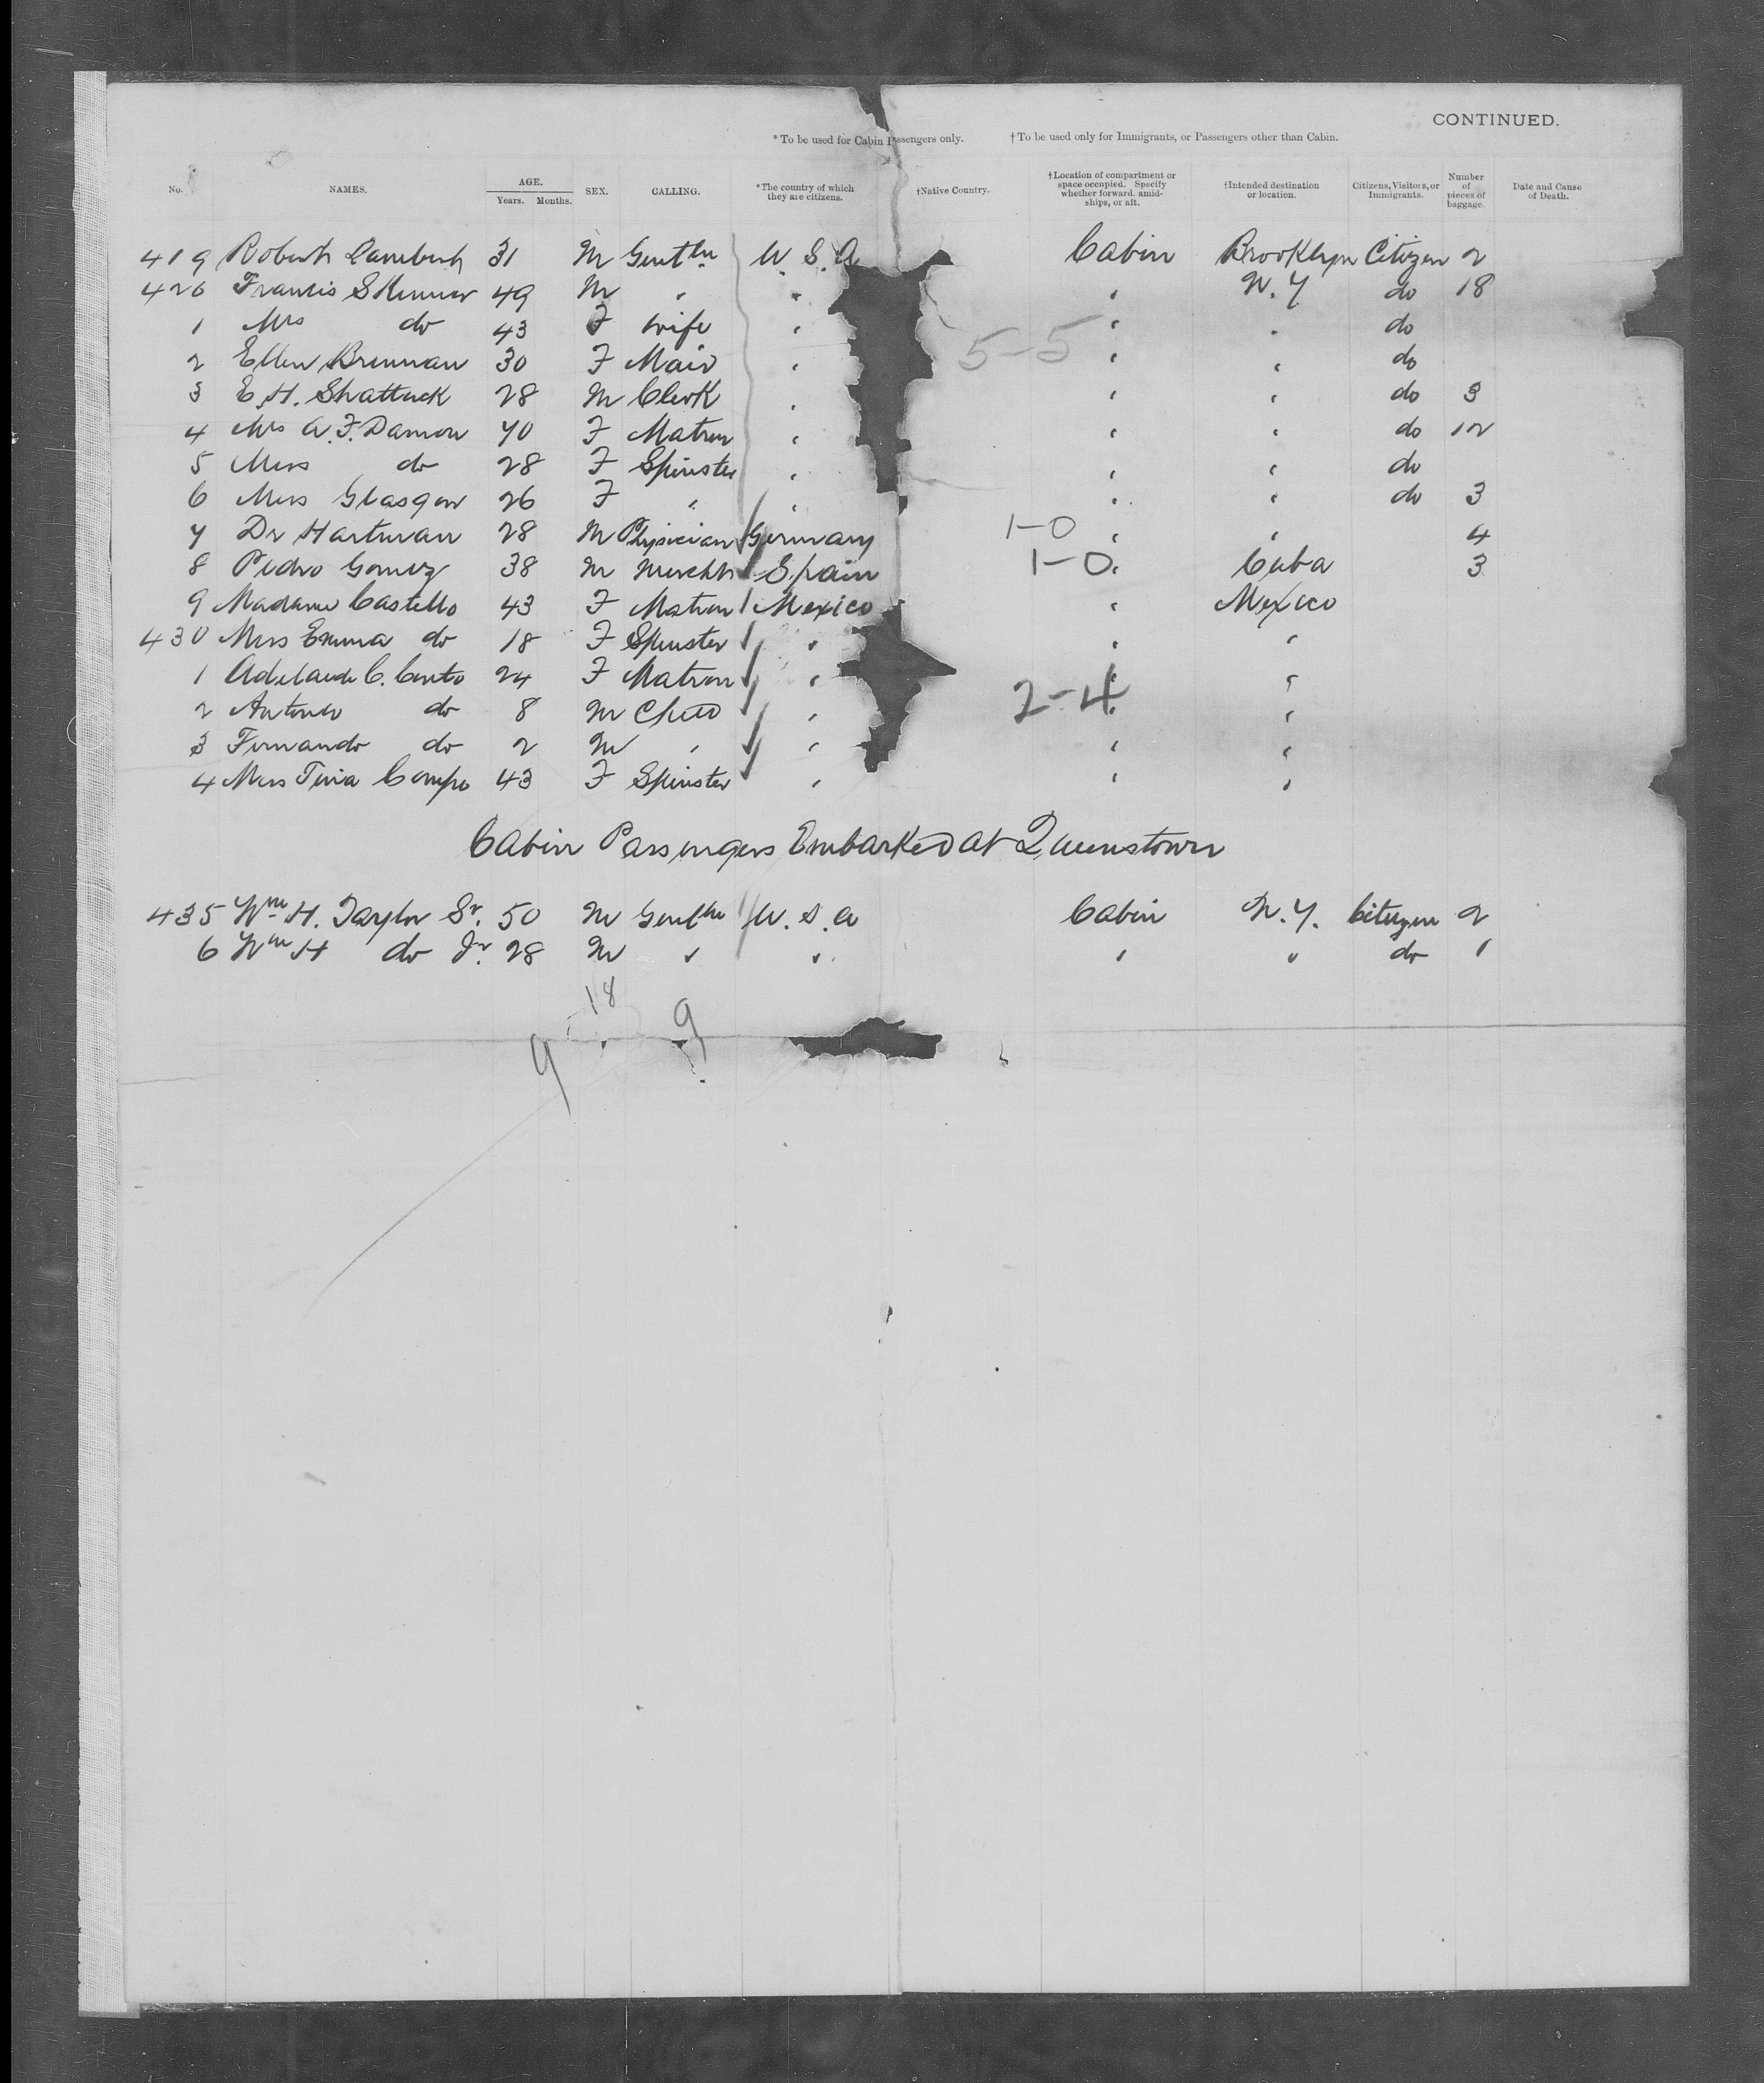 CONTINUED.
* To be used for Cabin Passengers only. † To be used only for Immigrants, or Passengers other than Cabin.
No. NAMES. AGE. Years. Months. SEX. CALLING. *The country of which they are citizens. †Native Country. †Location of compartment or space occupied. Specify whether forward, amidships, or aft. †Intended destination or location. Citizens, Visitors, or Immigrants. Number of pieces of baggage. Date and Cause of Death.
419 Robert Lambert 31 M Gentln U. S. A Cabin Brooklyn Citizen 2
420 Francis Skinner 49 M " " " N. Y do 18
1 Mrs do 43 F Wife " " " do
5-5
2 Ellen Brennan 30 F Maid " " " do
3 E. H. Shattuck 28 M Clerk " " " do 3
4 Mrs A. F. Damon 40 F Matron " " " do 12
5 Miss do 28 F Spinster " " " do
6 Miss Glasgow 26 F " " " " do 3
7 Dr Hartman 28 M Physician Germany 1-0 " " 4
8 Pedro Gomez 38 M Mercht Spain 1-0 " Cuba 3
9 Madame Castello 43 F Matron Mexico " Mexico
430 Miss Emma do 18 F Spinster " " "
1 Adelaide C. 24 F Matron " " "
2 Antonio do 8 M Child " 2-4 " "
3 Fernando do 2 M " " " "
4 Miss Campo 43 F Spinster " " "
Cabin Passengers Embarked at Queenstown
435 Wm H. Taylor Sr. 50 M Gentln U. S. A Cabin N. Y. Citizen 2
6 Wm H do Jr. 28 M " " " " do 1
18
9 9